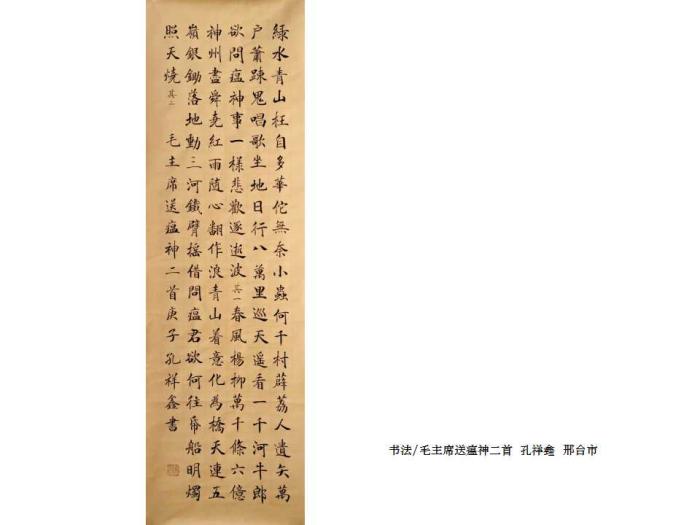 綠水青山枉自多華佗無奈小蟲何千村薜荔人遺矢萬
户蕭踈鬼唱歌坐地日行八萬里巡天遥看一千河牛郎
欲問瘟神事一樣悲歡逐逝波其一春風楊柳萬千條六億
神州盡舜堯紅雨隨心翻作浪青山着意化為橋天連五
嶺銀鋤落地動三河鐵臂摇借問瘟君欲何往帋船明燭
照天燒其二 毛主席送瘟神二首庚子孔祥鑫書
书法/毛主席送瘟神二首 孔祥鑫 邢台市